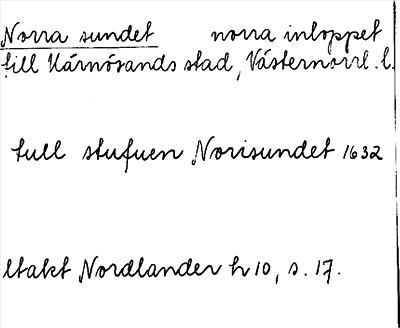 Norra sundet norra inloppet
till Härnösands stad, Västernorrl. l.
tull stufuen Norisundet 1632
ltakt Nordlander h 10, s. 17.